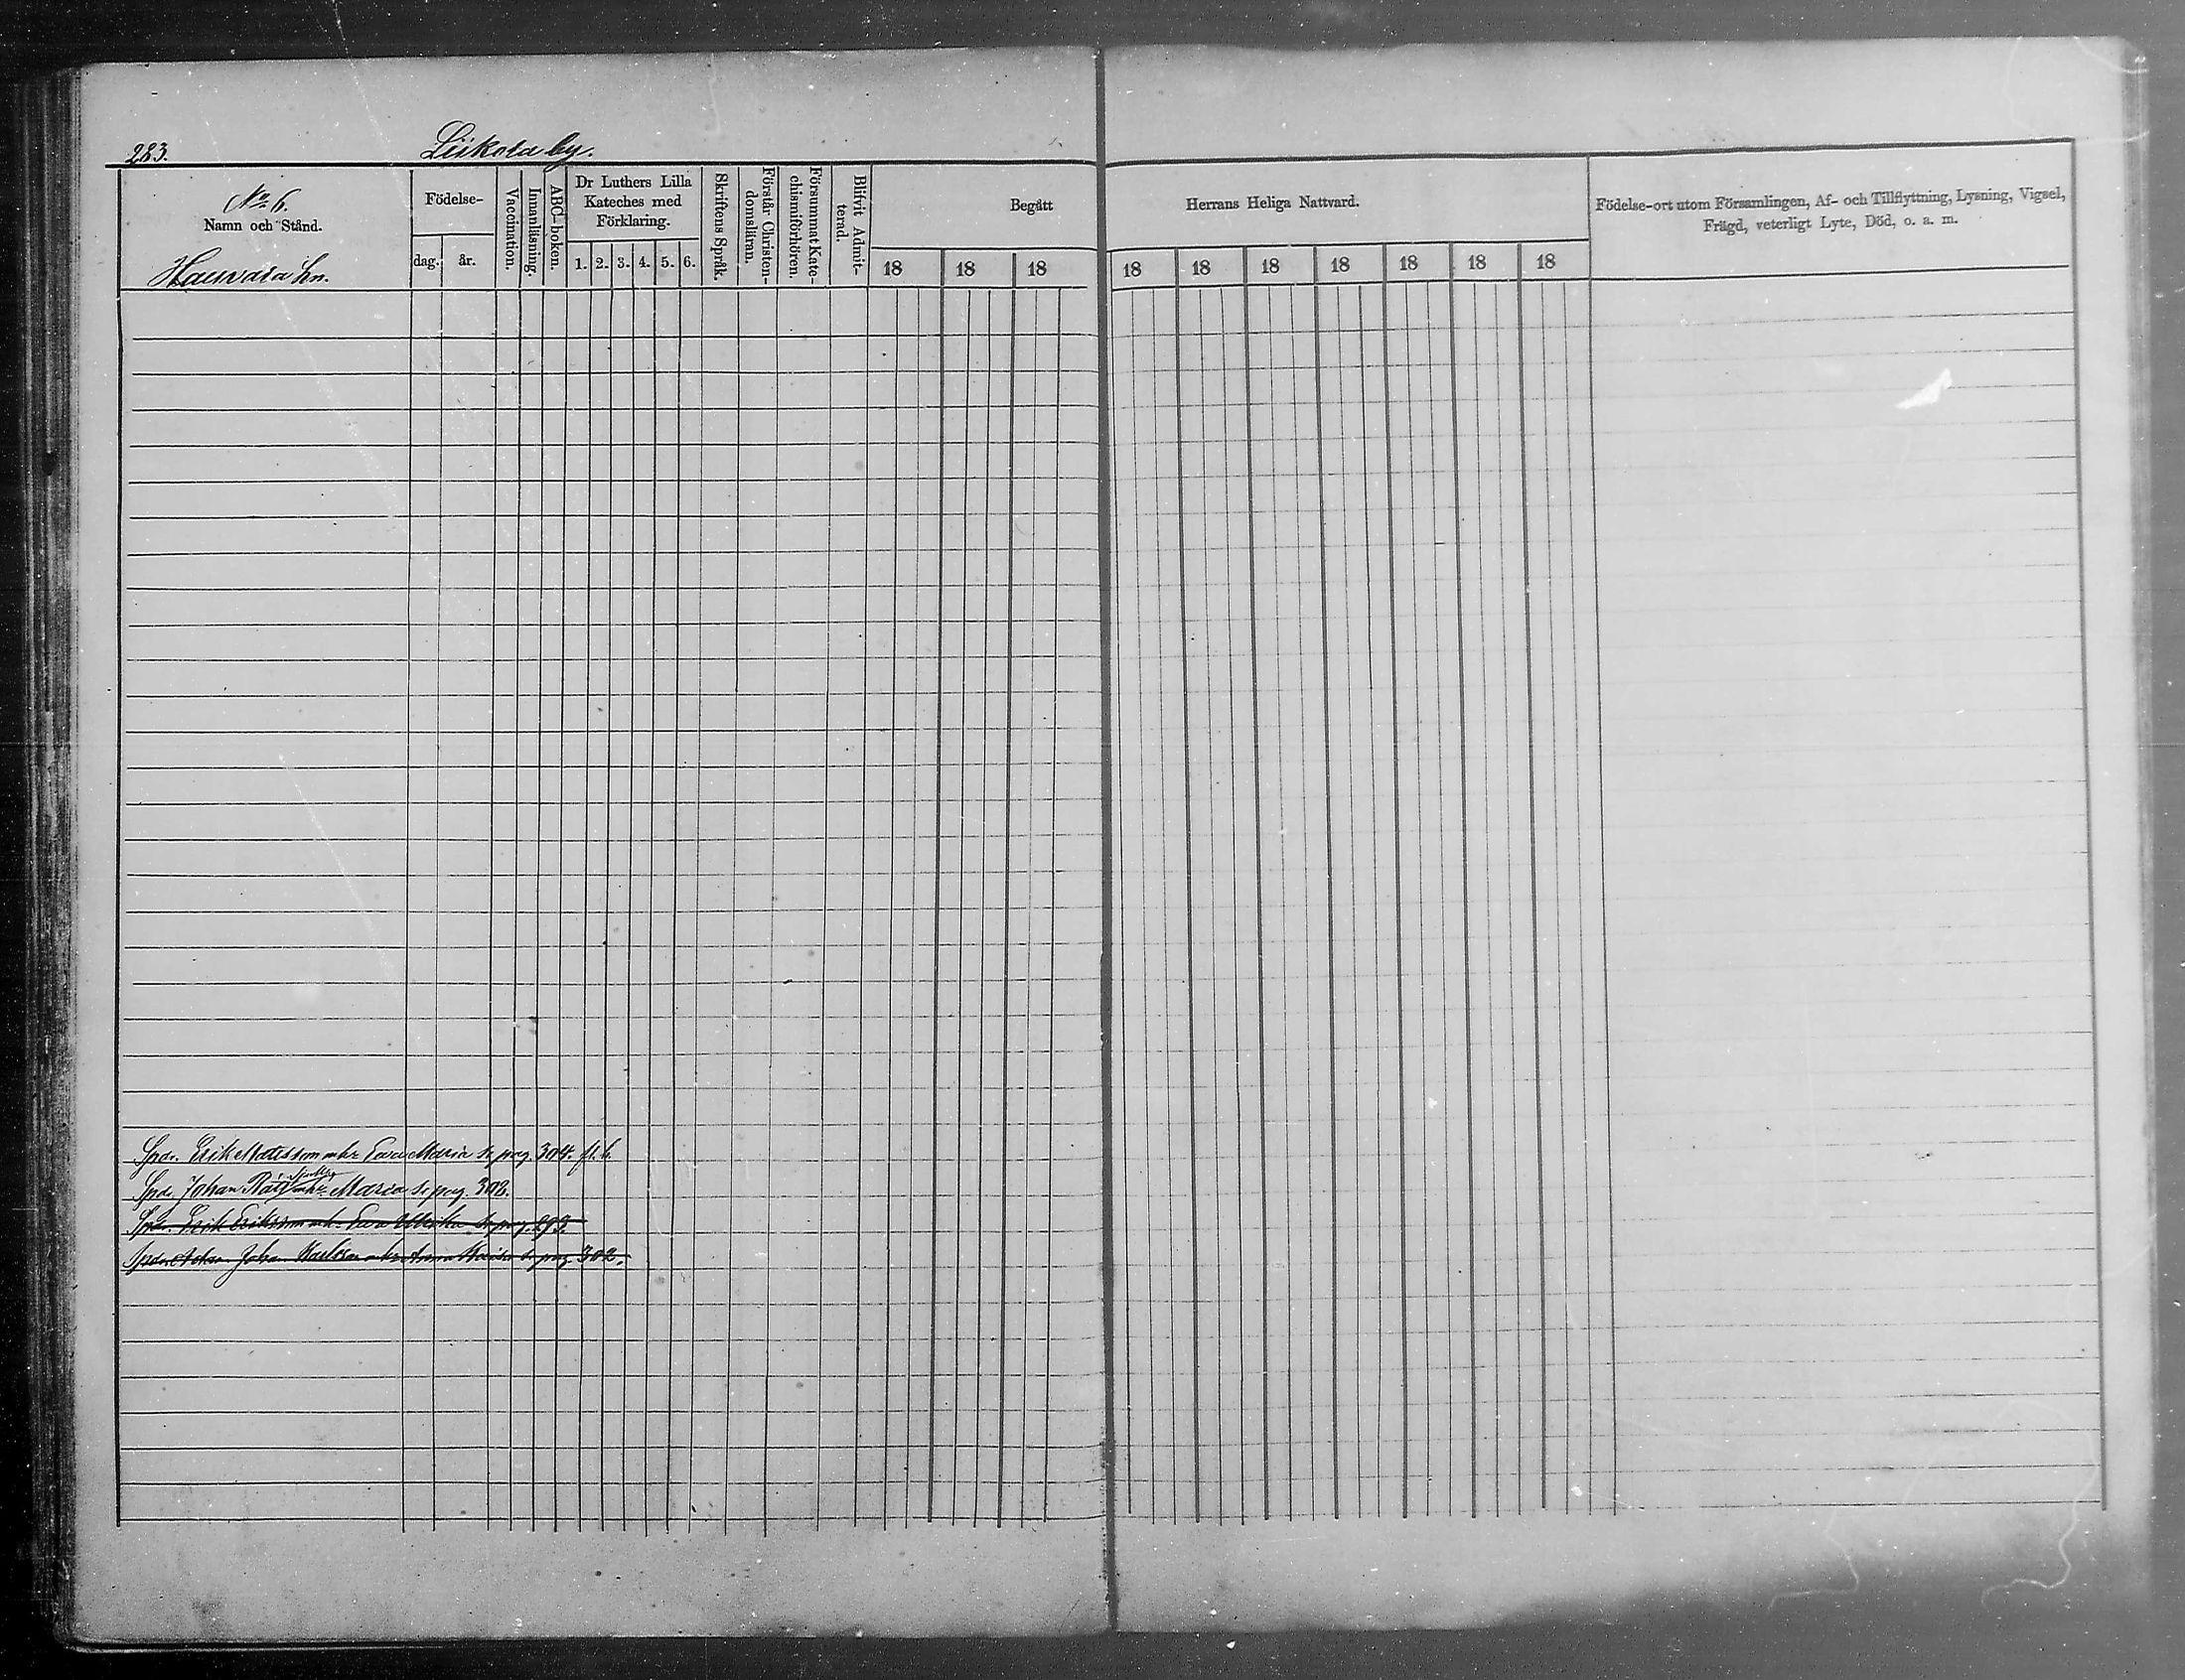 283.
Liikola by.
No 6.
Namn och Stånd.
Hauvala hn.
Födelse-
dag. år.
Vaccination.
Innanläsning.
ABC-boken.
Dr Luthers Lilla
Kateches med
Förklaring.
1. 2. 3. 4. 5. 6.
Skriftens Språk.
Förstår Christen-
domsläran.
Försummat Kate-
chismiförhören.
Blifvit Admit-
terad.
Begått
18 18 18
Herrans Heliga Nattvard.
18 18 18 18 18 18 18
Födelse-ort utom Församlingen, Af- och Tillflyttning, Lysning, Vigsel,
Frägd, veterligt Lyte, Död, o. a. m.
Spdr. Erik Matsson o. h. Eva Maria se pag. 304. fl. b.
Spdr Johan Maria se pag. 302.
Spdr. Erik Eriksson o. h. Eva Ulrika se pag. 293.
Johan Karlsson Anna Maria se pag. 302.